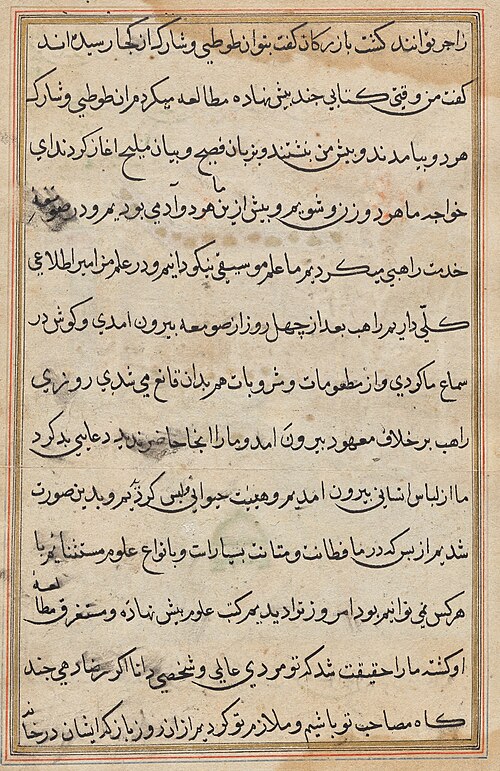 را چه توانند کشت بازرکان کفت بتوان طوطی و شارک از کجا رسیده‌اند
کفت من وقتی کتابی چند پیش نهاده مطالعه میکردم ان طوطی و شارک
هر دو بیامدند و پیش من بنشستند و بزبان فصیح و بیان ملیح اغاز کردند ای
خواجه ما هر دو زن و شوییم و پیش ازین ما هر دو آدمی بودیم و در صومعه
خدمت راهبی میکردیم ما علم موسیقی نیکو دانیم و در علم مزامیر اطلاعی
کلّی داریم راهب بعد از چهل روز از صومعه بیرون امدی و کوش در
سماع ما کردی و از مطعومات و مشروبات هم بدان قانع می شدی روزی
راهب بر خلاف معهود بیرون امد و ما را انجا حاضر ندید دعایی بد کرد
ما از لباس انسانی بیرون امدیم و هییت حیوانی ملبس کردیم و بدین صورت
شدیم از بس که در ما فطانت و متانت بسیار است و بانواع علوم مستثنا یم با
هرکس نمی توانیم بود امروز ترا دیدیم کتب علوم پیش نهاده و مستغرق مطالعهٔ
او کشته ما را حقیقت شد که تو مردی عالمی و شخصی دانا اکر رضا دهی چند
کاه مصاحب تو باشیم و ملازم تو کردیم از ان روز باز که ایشان در خانه